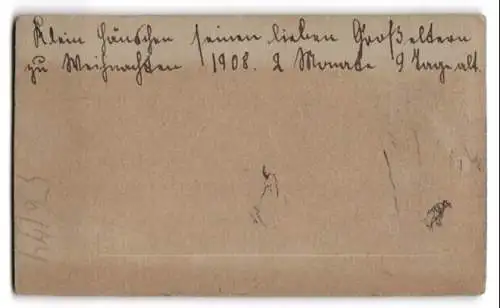 Klein Hänschen seinen lieben Großeltern
zu Weihnachten 1908. 2 Monate 9 Tage alt.